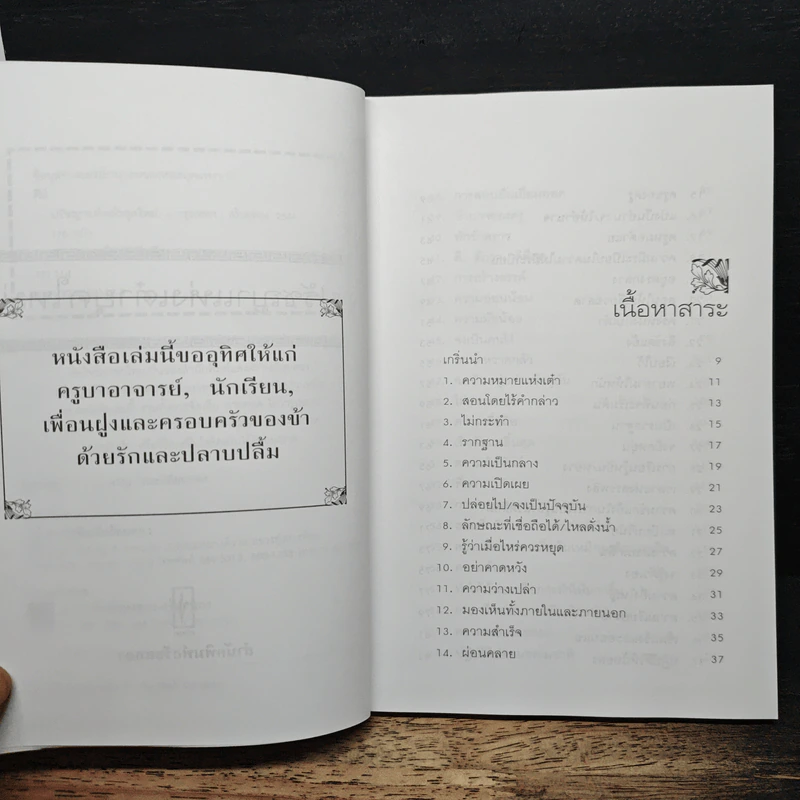 หนังสือเล่มนี้ขออุทิศให้แก่
ครูบาอาจารย์, นักเรียน,
เพื่อนฝูงและครอบครัวของข้า
ด้วยรักและปลาบปลื้ม
เนื้อหาสาระ
เกริ่นนำ 9
1. ความหมายแห่งเต๋า 11
2. สอนโดยไร้คำกล่าว 13
3. ไม่กระทำ 15
4. รากฐาน 17
5. ความเป็นกลาง 19
6. ความเปิดเผย 21
7. ปล่อยไป/จงเป็นปัจจุบัน 23
8. ลักษณะที่เชื่อถือได้/ไหลดั่งน้ำ 25
9. รู้ว่าเมื่อไหร่ควรหยุด 27
10. อย่าคาดหวัง 29
11. ความว่างเปล่า 31
12. มองเห็นทั้งภายในและภายนอก 33
13. ความสำเร็จ 35
14. ผ่อนคลาย 37